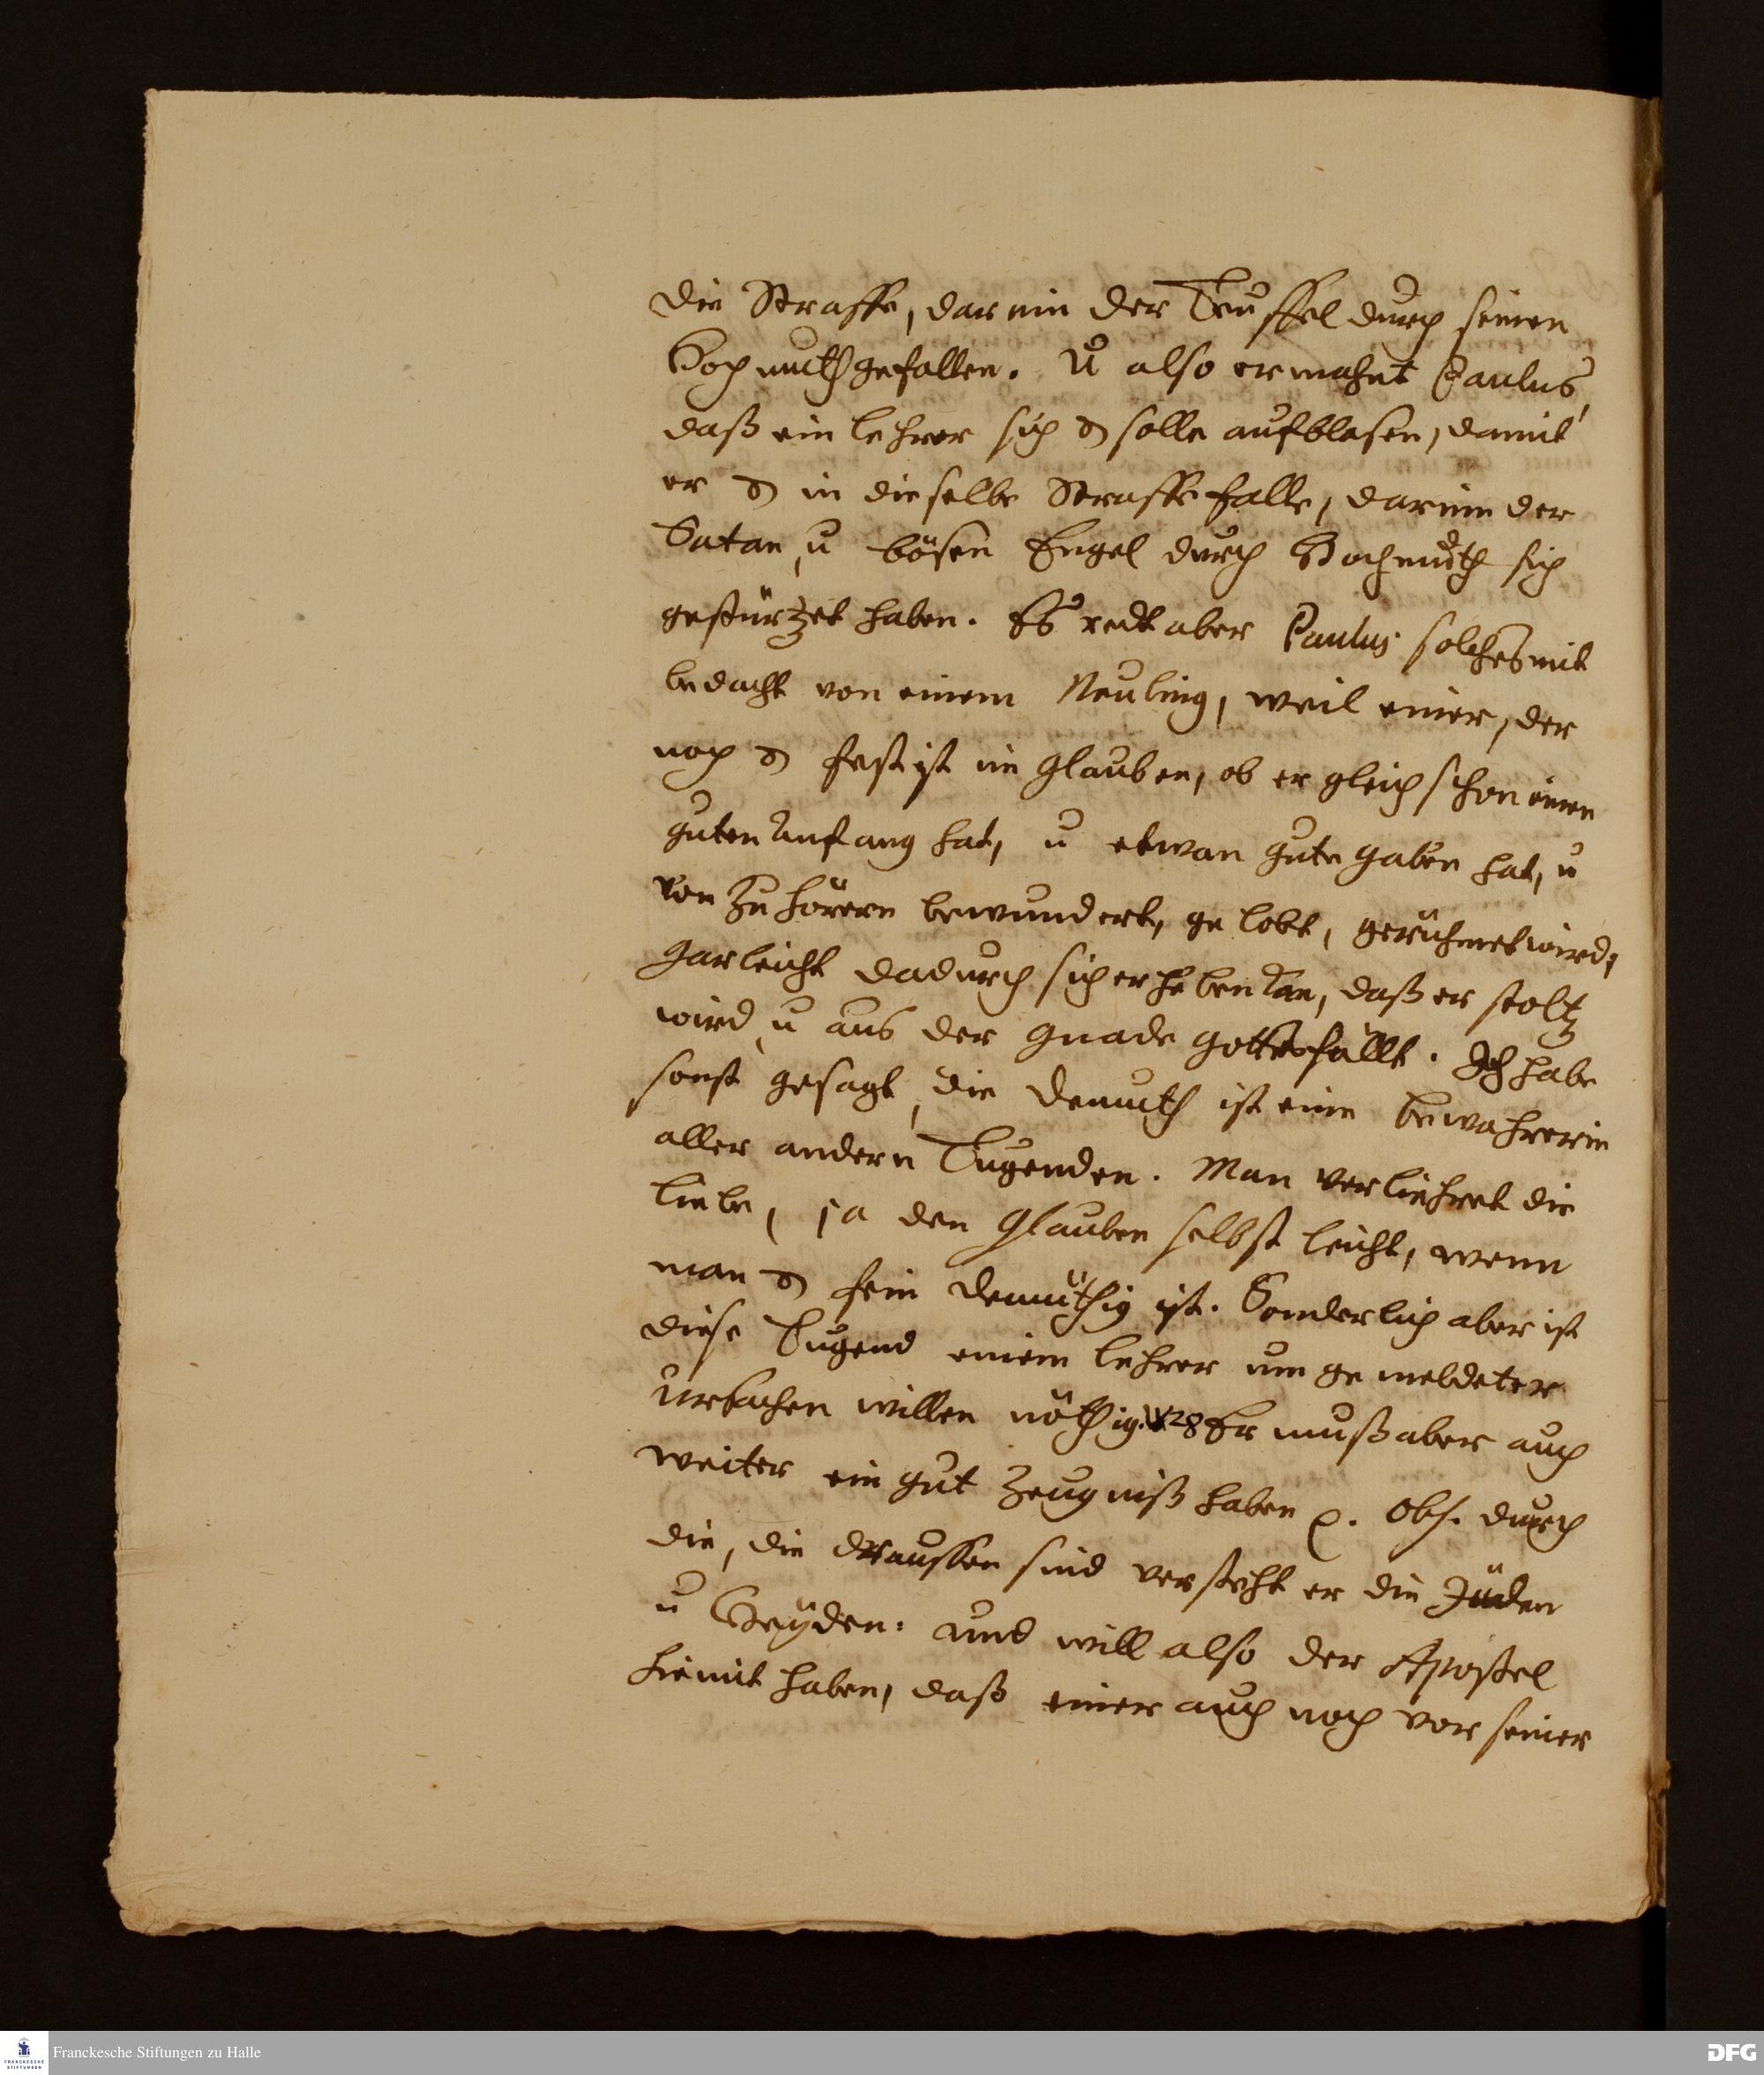 die Straffe, darein der Teuffel durch seinen
Hochmuth gefallen. U also ermahnt Paulus,
daß ein lehrer sich solle aufblasen, damit
er in dieselbe Straffe falle, darein der
Satan, u bösen Engel durch Hochmuth sich
gestürtzet haben. Es redt aber Paulus solches mit
bedacht von einem Neuling, weil einer, der
noch fest ist im glauben, ob er gleich schon einen
guten Anfang hat, u etwan gute gaben hat, u
von Zuhörern bewundert, gelobt, gerühmet wird,
gar leicht dadurch sich erheben kan, daß er stoltz
wird, u aus der gnade gottes fällt. Ich habe
sonst gesagt, die demuth ist eine bewahrerin
aller andern Tugenden. Man verliehret die
liebe, ja den Glauben selbst leicht, wenn
man fein demüthig ist. Sonderlich aber ist
diese Tugend einem lehrer um gemeldeter
Ursachen willen nöthig. Er muß aber auch
weiter ein gut Zeugniß haben p. Obs. durch
die, die draussen sind versteht er die Jüden
u Heyden: und will also der Apostel
hiemit haben, daß einer auch noch vor seiner
Franckesche Stiftungen zu Halle
FRANCKESCHE
STIFTUNGEN
DFG